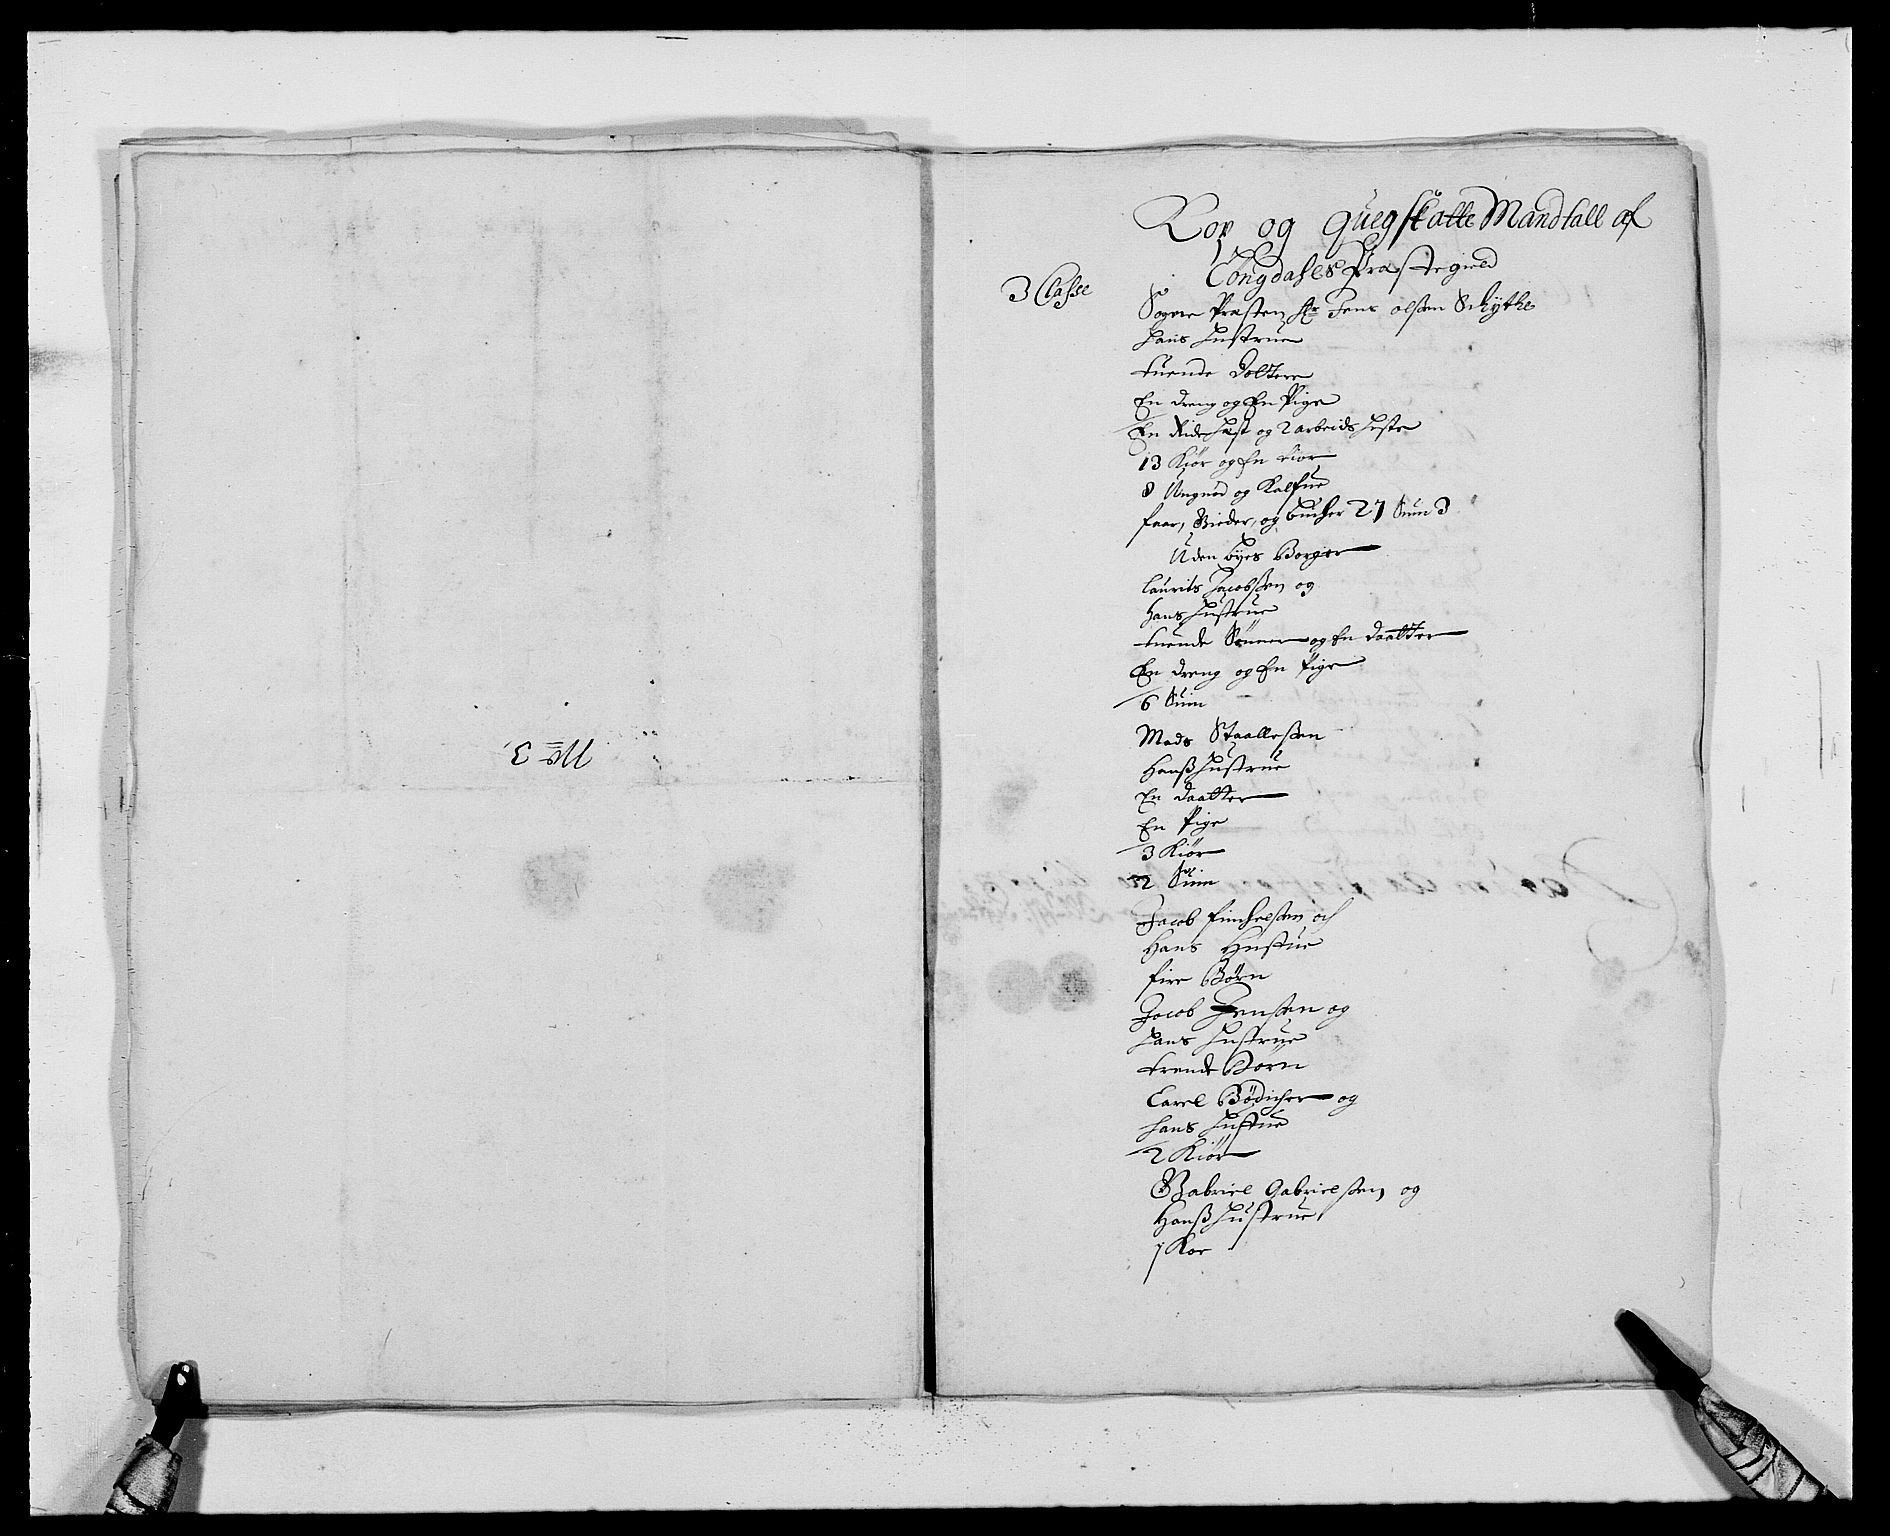 No 3.
Kop og Quegskatte Mandtall af
Congdahls Præstegield
3 Classe
Sogne Præsten Hr Jens olsen Schÿthe
hans hustrue
tuende Dottere
En dreng og En Pige
En Ride hæst og 2 arbeids heste
13 Kiör og En tior
8 Ungnöd og Kalfue
faar, Gieder, og bucher 27 Suin 3
Uden byes Borger
Laurits Jacobsen og
Hans Hustrue
tuende Sönner og En daatter
En dreng og En Pige
6 Suin
Mads Staallesen
Hanß Hustrue
En daatter
En Pige
3 Kiör
2 Suin
Jacob finchelsen och
Hans Hustue
fire Börn
Jacob Jensen og
hans hustrue
trende Börn
Carel Bödicher og
hans hustue
2 Kiör
Gabriel Gabrielsen og
Hanß Hustrue
1 Koe